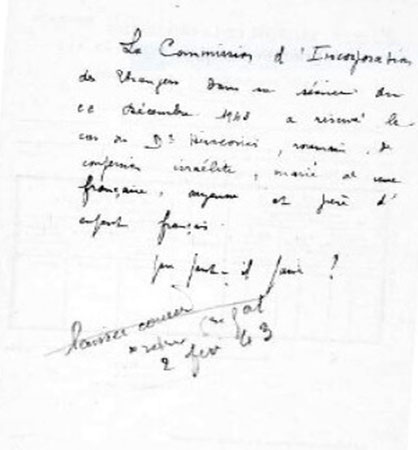 La Commission d'Incorporation
des Etrangers dans sa séance du
22 Décembre 1942 a réservé le
cas du Dr Herscovici, roumain, de
confession israélite, marié à une
française, et père d'
enfant français.
Que faut-il faire ?
laisser courir
2 fév 43